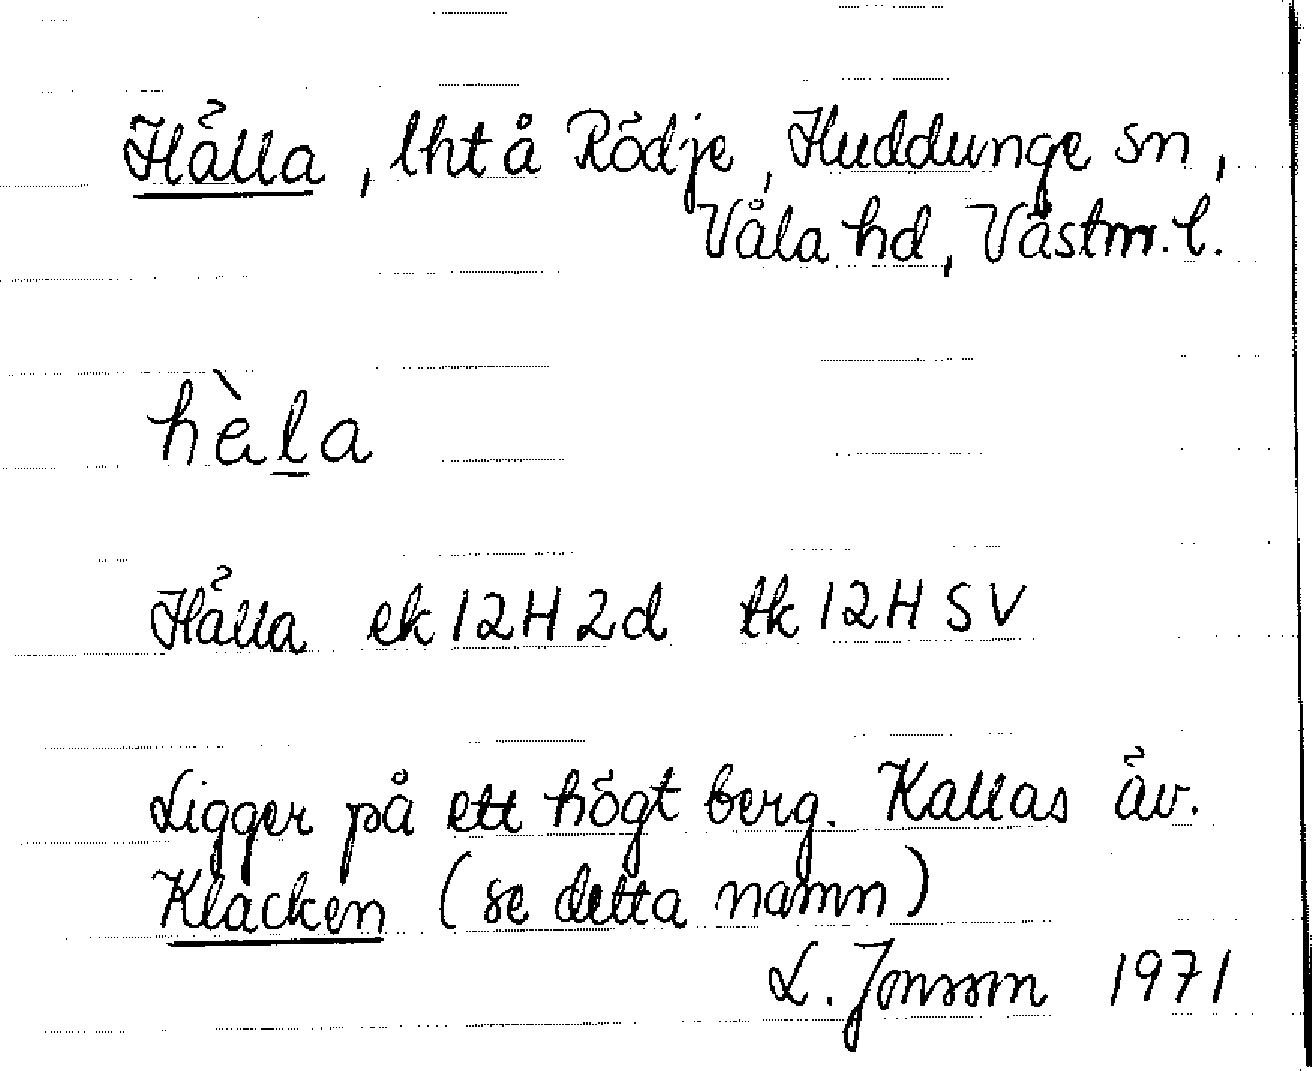 Hälla, lht å Rödje, Huddunge sn,
Våla hd, Västm. l.
hæ̀l̲a
Hälla ek 12H2d tk 12H SV
Ligger på ett högt berg. Kallas äv.
Klacken (se detta namn)
L. Jonsson 1971